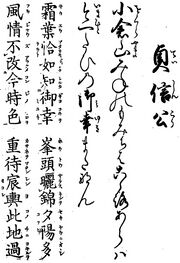 貞信公
小倉山みねのもみちはこゝろあらハ
今一たひの御幸またなん
霜葉恰如知御幸 峯頭曬錦夕陽多
風情不改今時色 重待宸輿此地過